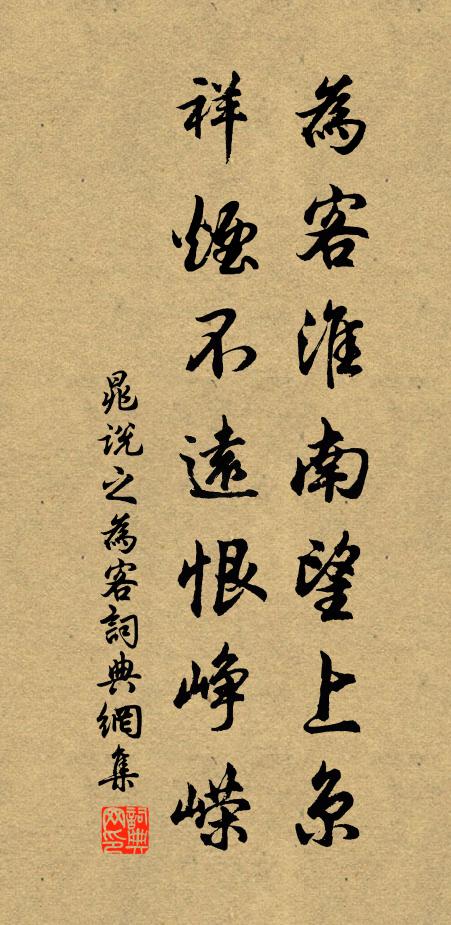 為客淮南望上京
祥煙不遠恨崢嶸
晁說之為客詞典網集
詞典網印